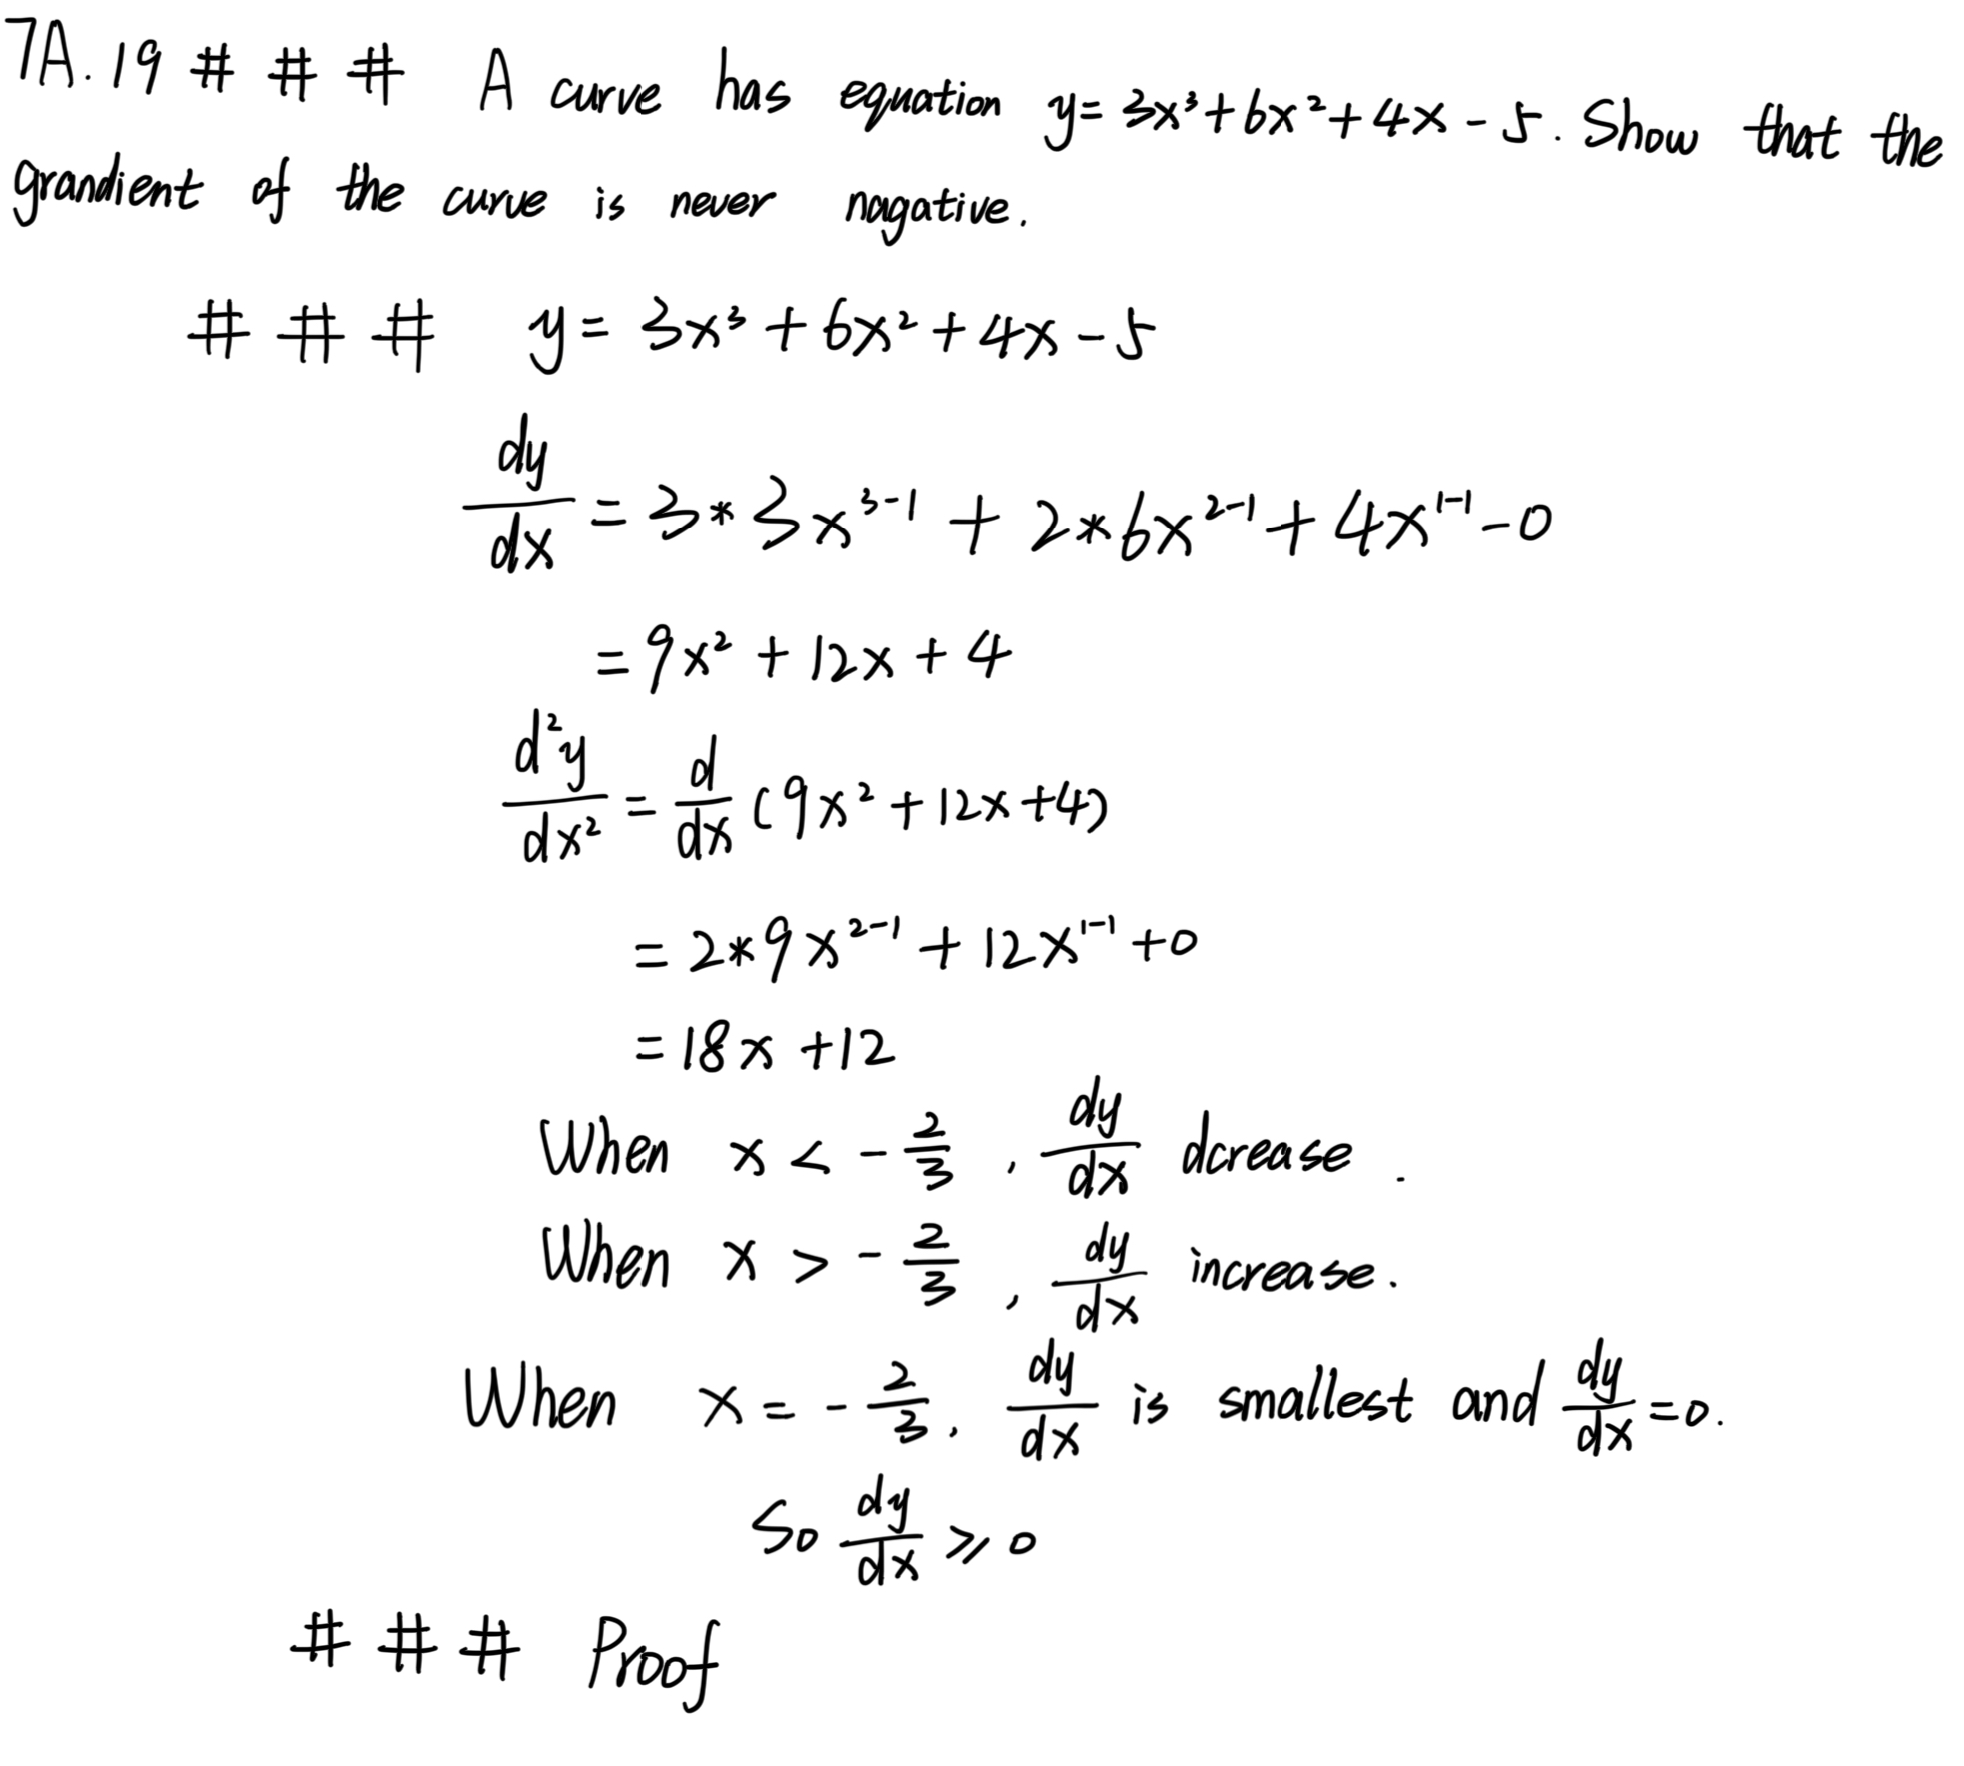 7A.19 # # # A curve has equation y = 3x³ + 6x² + 4x - 5. Show that the
grandient of the curve is never nagative.
# # # y = 3x³ + 6x² + 4x - 5
dy/dx = 3*3x³⁻¹ + 2*6x²⁻¹ + 4x¹⁻¹ - 0
= 9x² + 12x + 4
d²y/dx² = d/dx (9x² + 12x + 4)
= 2*9x²⁻¹ + 12x¹⁻¹ + 0
= 18x + 12
When x < -2/3, dy/dx dcrease.
When x > -2/3, dy/dx increase.
When x = -2/3, dy/dx is smallest and dy/dx = 0.
So dy/dx ⩾ 0
# # # Proof